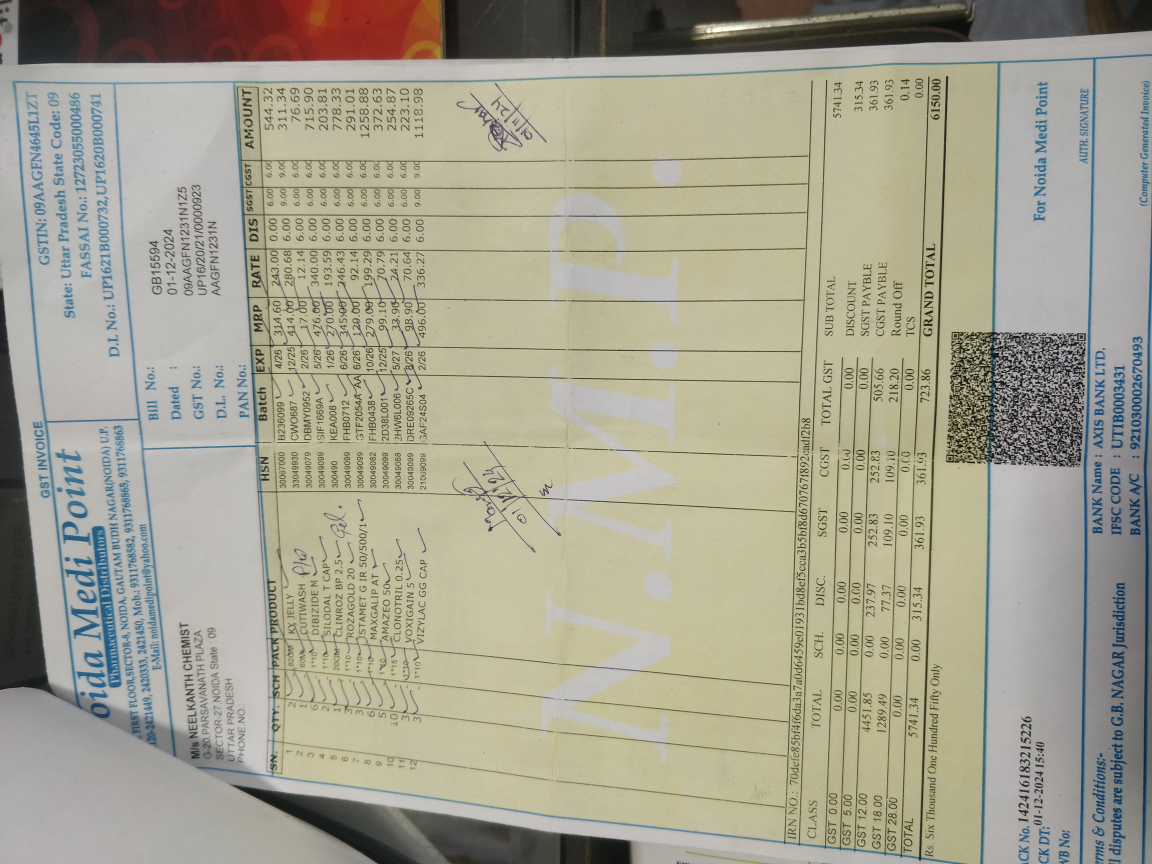 GST INVOICE
oida Medi Point
Pharmaceutical Distributors
FIRST FLOOR,SECTOR-8, NOIDA, GAUTAM BUDH NAGAR(NOIDA) U.P.
120-2421449, 2420333, 2421450, Mob.: 9311768582, 9311768865, 9311768863
E-Mail: noidamedipoint@yahoo.com
GSTIN: 09AAGFN4645L1ZT
State: Uttar Pradesh State Code: 09
FASSAI No.:12723055000486
D.L No.: UP1621B000732,UP1620B000741
M/s NEELKANTH CHEMIST
G-20 PARSAVANATH PLAZA
SECTOR-27,NOIDA State : 09
UTTAR PRADESH
PHONE NO.:
Bill No.: GB15594
Dated : 01-12-2024
GST No.: 09AAGFN1231N1Z5
D.L. No.: UP16/20/21/0000923
PAN No.: AAGFN1231N
SN. QTY. SCH PACK PRODUCT HSN Batch EXP MRP RATE DIS SGST CGST AMOUNT
1 2 82GM KX JELLY 30067000 B236099 4/26 314.60 243.00 0.00 6.00 6.00 544.32
2 1 60ML CUTIWASH 33049930 CWO687 12/25 414.00 280.68 6.00 9.00 9.00 311.34
3 6 1*10 DIBIZIDE M 30049079 DBMY0952 2/26 17.00 12.14 6.00 6.00 6.00 76.69
4 2 1*10 SILODAL T CAP 30049099 SIF1669A 5/26 476.00 340.00 6.00 6.00 6.00 715.90
5 1 20GM CLINROZ BP 2.5 Gel. 30490 KEA008 1/26 270.00 193.59 6.00 6.00 6.00 203.81
6 3 1*10 ROZAGOLD 20 30049099 FHB0712 6/26 345.00 246.43 6.00 6.00 6.00 778.33
7 3 1*10 ISTAMET G IR 50/500/1 30049099 GTF2054A AA 6/26 129.00 92.14 6.00 6.00 6.00 291.01
8 6 1*10 MAXGALIP AT 30049082 FHB0438 10/26 279.00 199.29 6.00 6.00 6.00 1258.88
9 5 1*10 AMAZEO 50 30049099 2D38L001 12/25 99.10 70.79 6.00 6.00 6.00 372.63
10 10 1*15 CLONOTRIL 0.25 30049088 2HW6L006 5/27 33.90 24.21 6.00 6.00 6.00 254.87
11 3 1*10 VOXIGAIN 5 30049099 DRE09265C 8/26 98.90 70.64 6.00 6.00 6.00 223.10
12 3 1*10 VIZYLAC GG CAP 21069099 GAF24S04 2/26 496.00 336.27 6.00 9.00 9.00 1118.98
N.M.P.
IRN NO.: 70defe85bf4f6da3a7a0d6459e01931bd8ef5cca3b5bf8d670767892cadf2b8
CLASS TOTAL SCH. DISC. SGST CGST TOTAL GST
GST 0.00 0.00 0.00 0.00 0.00 0.00 0.00
GST 5.00 0.00 0.00 0.00 0.00 0.00 0.00
GST 12.00 4451.85 0.00 237.97 252.83 252.83 505.66
GST 18.00 1289.49 0.00 77.37 109.10 109.10 218.20
GST 28.00 0.00 0.00 0.00 0.00 0.00 0.00
TOTAL 5741.34 0.00 315.34 361.93 361.93 723.86
SUB TOTAL 5741.34
DISCOUNT 315.34
SGST PAYBLE 361.93
CGST PAYBLE 361.93
Round Off 0.14
TCS 0.00
GRAND TOTAL 6150.00
Rs. Six Thousand One Hundred Fifty Only
ACK No. 142416183215226
CK DT: 01-12-2024 15:40
WB No:
rms & Conditions:-
l disputes are subject to G.B. NAGAR Jurisdiction
BANK Name : AXIS BANK LTD.
IFSC CODE : UTIB0003431
BANK A/C : 921030002670493
For Noida Medi Point
AUTH. SIGNATURE
(Computer Generated Invoice)